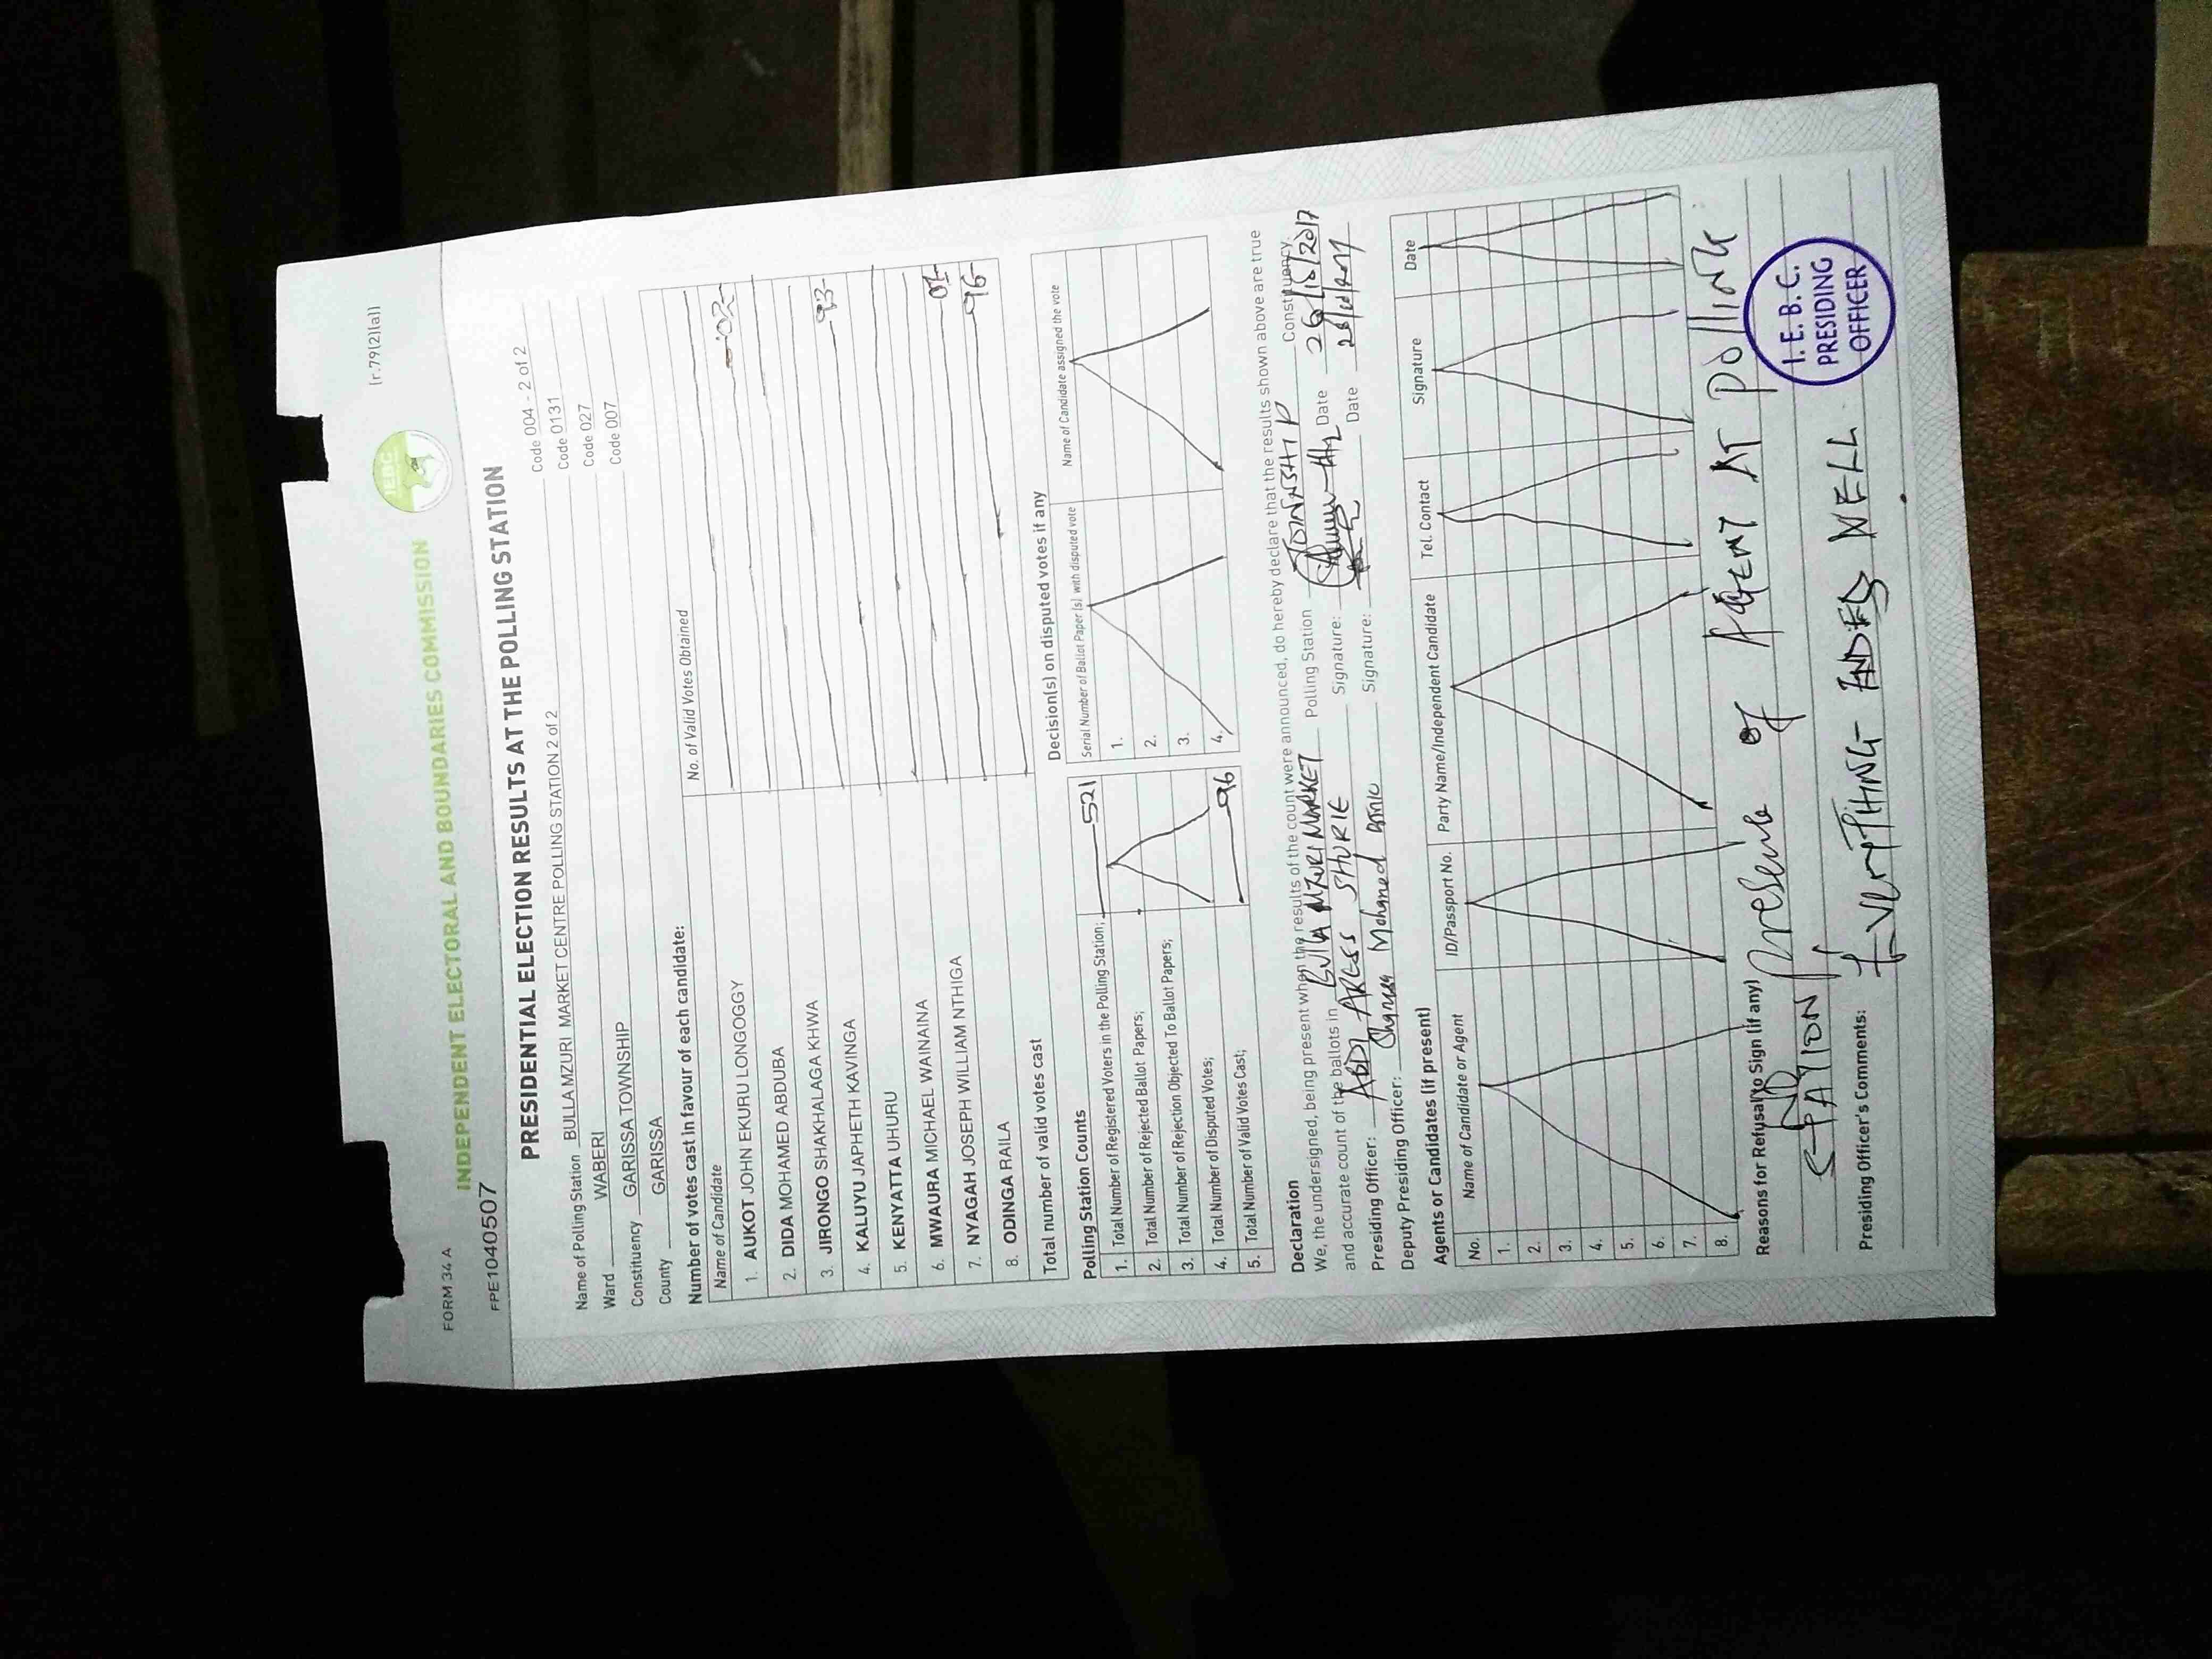 FORM 34 A
(r.79(2)(a))
IEBC
INDEPENDENT ELECTORAL AND BOUNDARIES COMMISSION
FPE1040507
PRESIDENTIAL ELECTION RESULTS AT THE POLLING STATION
Name of Polling Station BULLA MZURI MARKET CENTRE POLLING STATION 2 of 2 Code 004 - 2 of 2
Ward WABERI Code 0131
Constituency GARISSA TOWNSHIP Code 027
County GARISSA Code 007
Number of votes cast in favour of each candidate:
Name of Candidate No. of Valid Votes Obtained
1. AUKOT JOHN EKURU LONGOGGY 02
2. DIDA MOHAMED ABDUBA
3. JIRONGO SHAKHALAGA KHWA
4. KALUYU JAPHETH KAVINGA
5. KENYATTA UHURU 93
6. MWAURA MICHAEL WAINAINA
7. NYAGAH JOSEPH WILLIAM NTHIGA
8. ODINGA RAILA 01
Total number of valid votes cast 96
Polling Station Counts
1. Total Number of Registered Voters in the Polling Station; 521
2. Total Number of Rejected Ballot Papers;
3. Total Number of Rejection Objected To Ballot Papers;
4. Total Number of Disputed Votes;
5. Total Number of Valid Votes Cast; 96
Decision(s) on disputed votes if any
Serial Number of Ballot Paper(s) with disputed vote Name of Candidate assigned the vote
1.
2.
3.
4.
Declaration
We, the undersigned, being present when the results of the count were announced, do hereby declare that the results shown above are true
and accurate count of the ballots in BULLA MZURI MARKET Polling Station TOWNSHIP Constituency.
Presiding Officer: ABDI ARESS SHURIE Signature: Date 26/10/2017
Deputy Presiding Officer: Mohamed Signature: Date 26/10/2017
Agents or Candidates (if present)
No. Name of Candidate or Agent ID/Passport No. Party Name/Independent Candidate Tel. Contact Signature Date
1.
2.
3.
4.
5.
6.
7.
8.
Reasons for Refusal to Sign (if any) NO Presence of AGENT AT POLLING
STATION
Presiding Officer's Comments: EVERYTHING ENDED WELL.
I.E.B.C.
PRESIDING
OFFICER